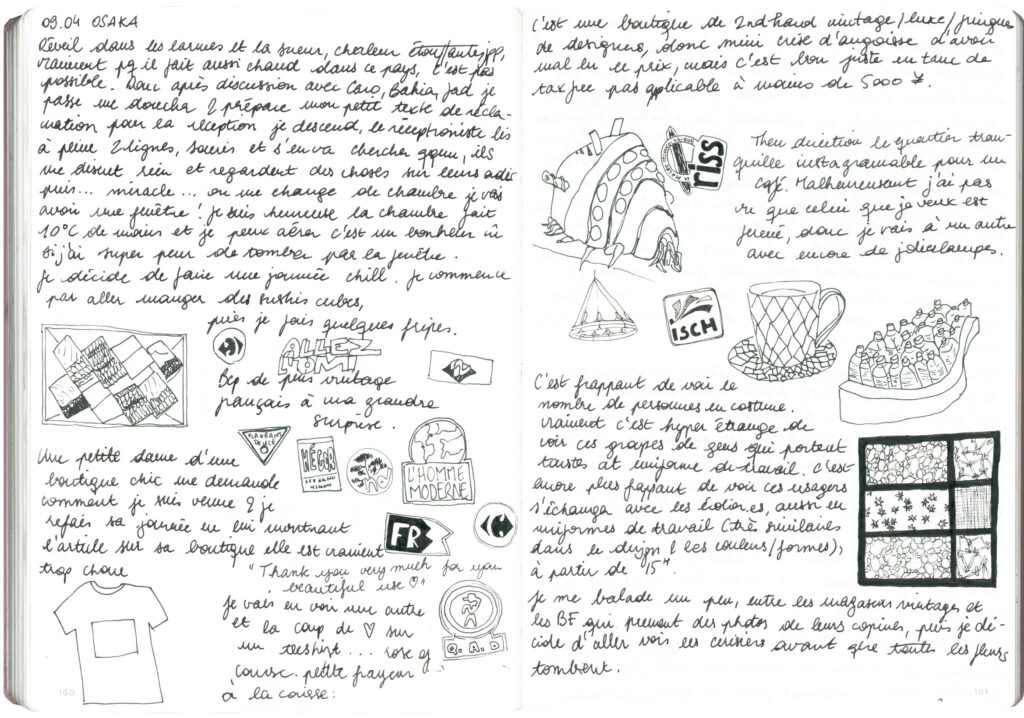 09.04 OSAKA
Réveil dans les larmes et la sueur, chaleur étouffante jpp,
vraiment pq il fait aussi chaud dans ce pays, c'est pas
possible. Donc après discussion avec Caro, Bahia, Jad je
passe une douche & prépare mon petit texte de récla-
mation pour la réception je descend, le réceptioniste lis
à peine 2 lignes, souris et s'en va chercher qqun, ils
me disent rien et regardent des choses sur leurs ordi
puis... miracle... on me change de chambre je vais
avoir une fenêtre ! je suis heureuse la chambre fait
10°C de moins et je peux aérer c'est un bonheur
si j'ai super peur de tomber par la fenêtre.
Je décide de faire une journée chill. Je commence
par aller manger des sushis cubes,
puis je fais quelques fripes.
ALLEZ
Bcp de pins vintage
français à ma grande
surprise.
Une petite dame d'une
boutique chic me demande
comment je suis venue & je
refais sa journée en lui montrant
l'article sur sa boutique elle est vraiment
trop choue
L'HOMME
MODERNE
FR
"Thank you very much for you
beautiful use ♡"
Je vais en voir une autre
et la coup de ♡ sur
un teeshirt... rose
course. petite frayeur
à la caisse:
Q.A.D
160
C'est une boutique de 2nd hand vintage/luxe/fringues
de designers, donc mini crise d'angoisse d'avoir
mal lu le prix, mais c'est bon juste un truc de
tax free pas applicable à moins de 5000 ¥.
riss
Then direction le quartier tran-
quille instagramable pour un
café. Malheureusement j'ai pas
vu que celui que je veux est
fermé, donc je vais à un autre
avec encore de jolies langes.
isch
C'est frappant de voir le
nombre de personnes en costume.
vraiment c'est hyper étrange de
voir ces grapes de gens qui portent
toustes at uniforme de travail. c'est
encore plus frappant de voir ces usagers
s'échanger avec les écolier.es, aussi en
uniformes de travail (très similaires
dans le design & les couleurs/formes),
à partir de "15".
Je me balade un peu, entre les magasins vintages et
les BF qui prennent des photos de leurs copines, puis je dé-
cide d'aller voir les cerisiers avant que toutes les fleurs
tombent.
161